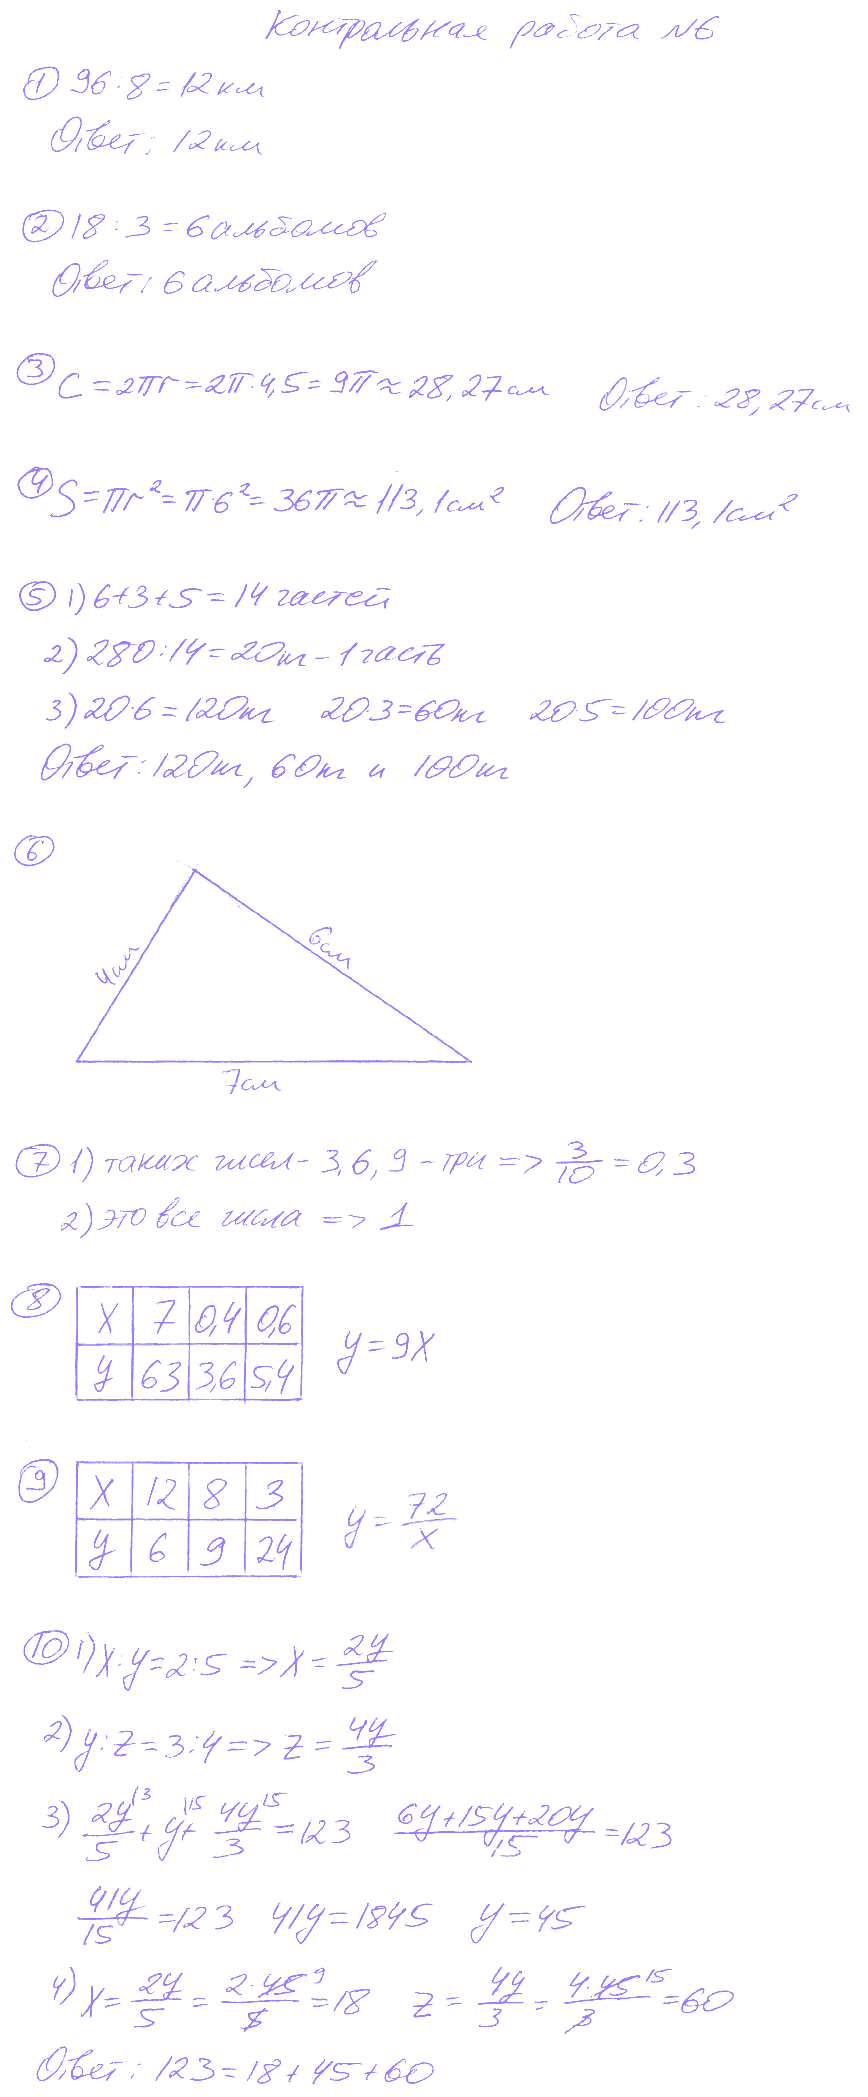 Контрольная работа №6
① 96:8=12км
Ответ: 12км
② 18:3=6 альбомов
Ответ: 6 альбомов
③ C=2πr=2π·4,5=9π≈28,27см Ответ: 28,27см
④ S=πr²=π·6²=36π≈113,1см² Ответ: 113,1см²
⑤ 1) 6+3+5=14 частей
2) 280:14=20т-1 часть
3) 20·6=120т 20·3=60т 20·5=100т
Ответ: 120т, 60т и 100т
⑥
4см
6см
7см
⑦ 1) таких чисел - 3, 6, 9 - три => 3/10 = 0,3
2) это все числа => 1
⑧
X 7 0,4 0,6
y 63 3,6 5,4
y=9X
⑨
X 12 8 3
y 6 9 24
y = 72/X
⑩ 1) X:y=2:5 => X = 2y/5
2) y:z=3:4 => z = 4y/3
3) 2y/5 |3 + y |15 + 4y/3 |5 = 123 (6y+15y+20y)/15 = 123
41y/15 = 123 41y=1845 y=45
4) X = 2y/5 = 2·45/5 9 = 18 z = 4y/3 = 4·45/3 15 = 60
Ответ: 123=18+45+60